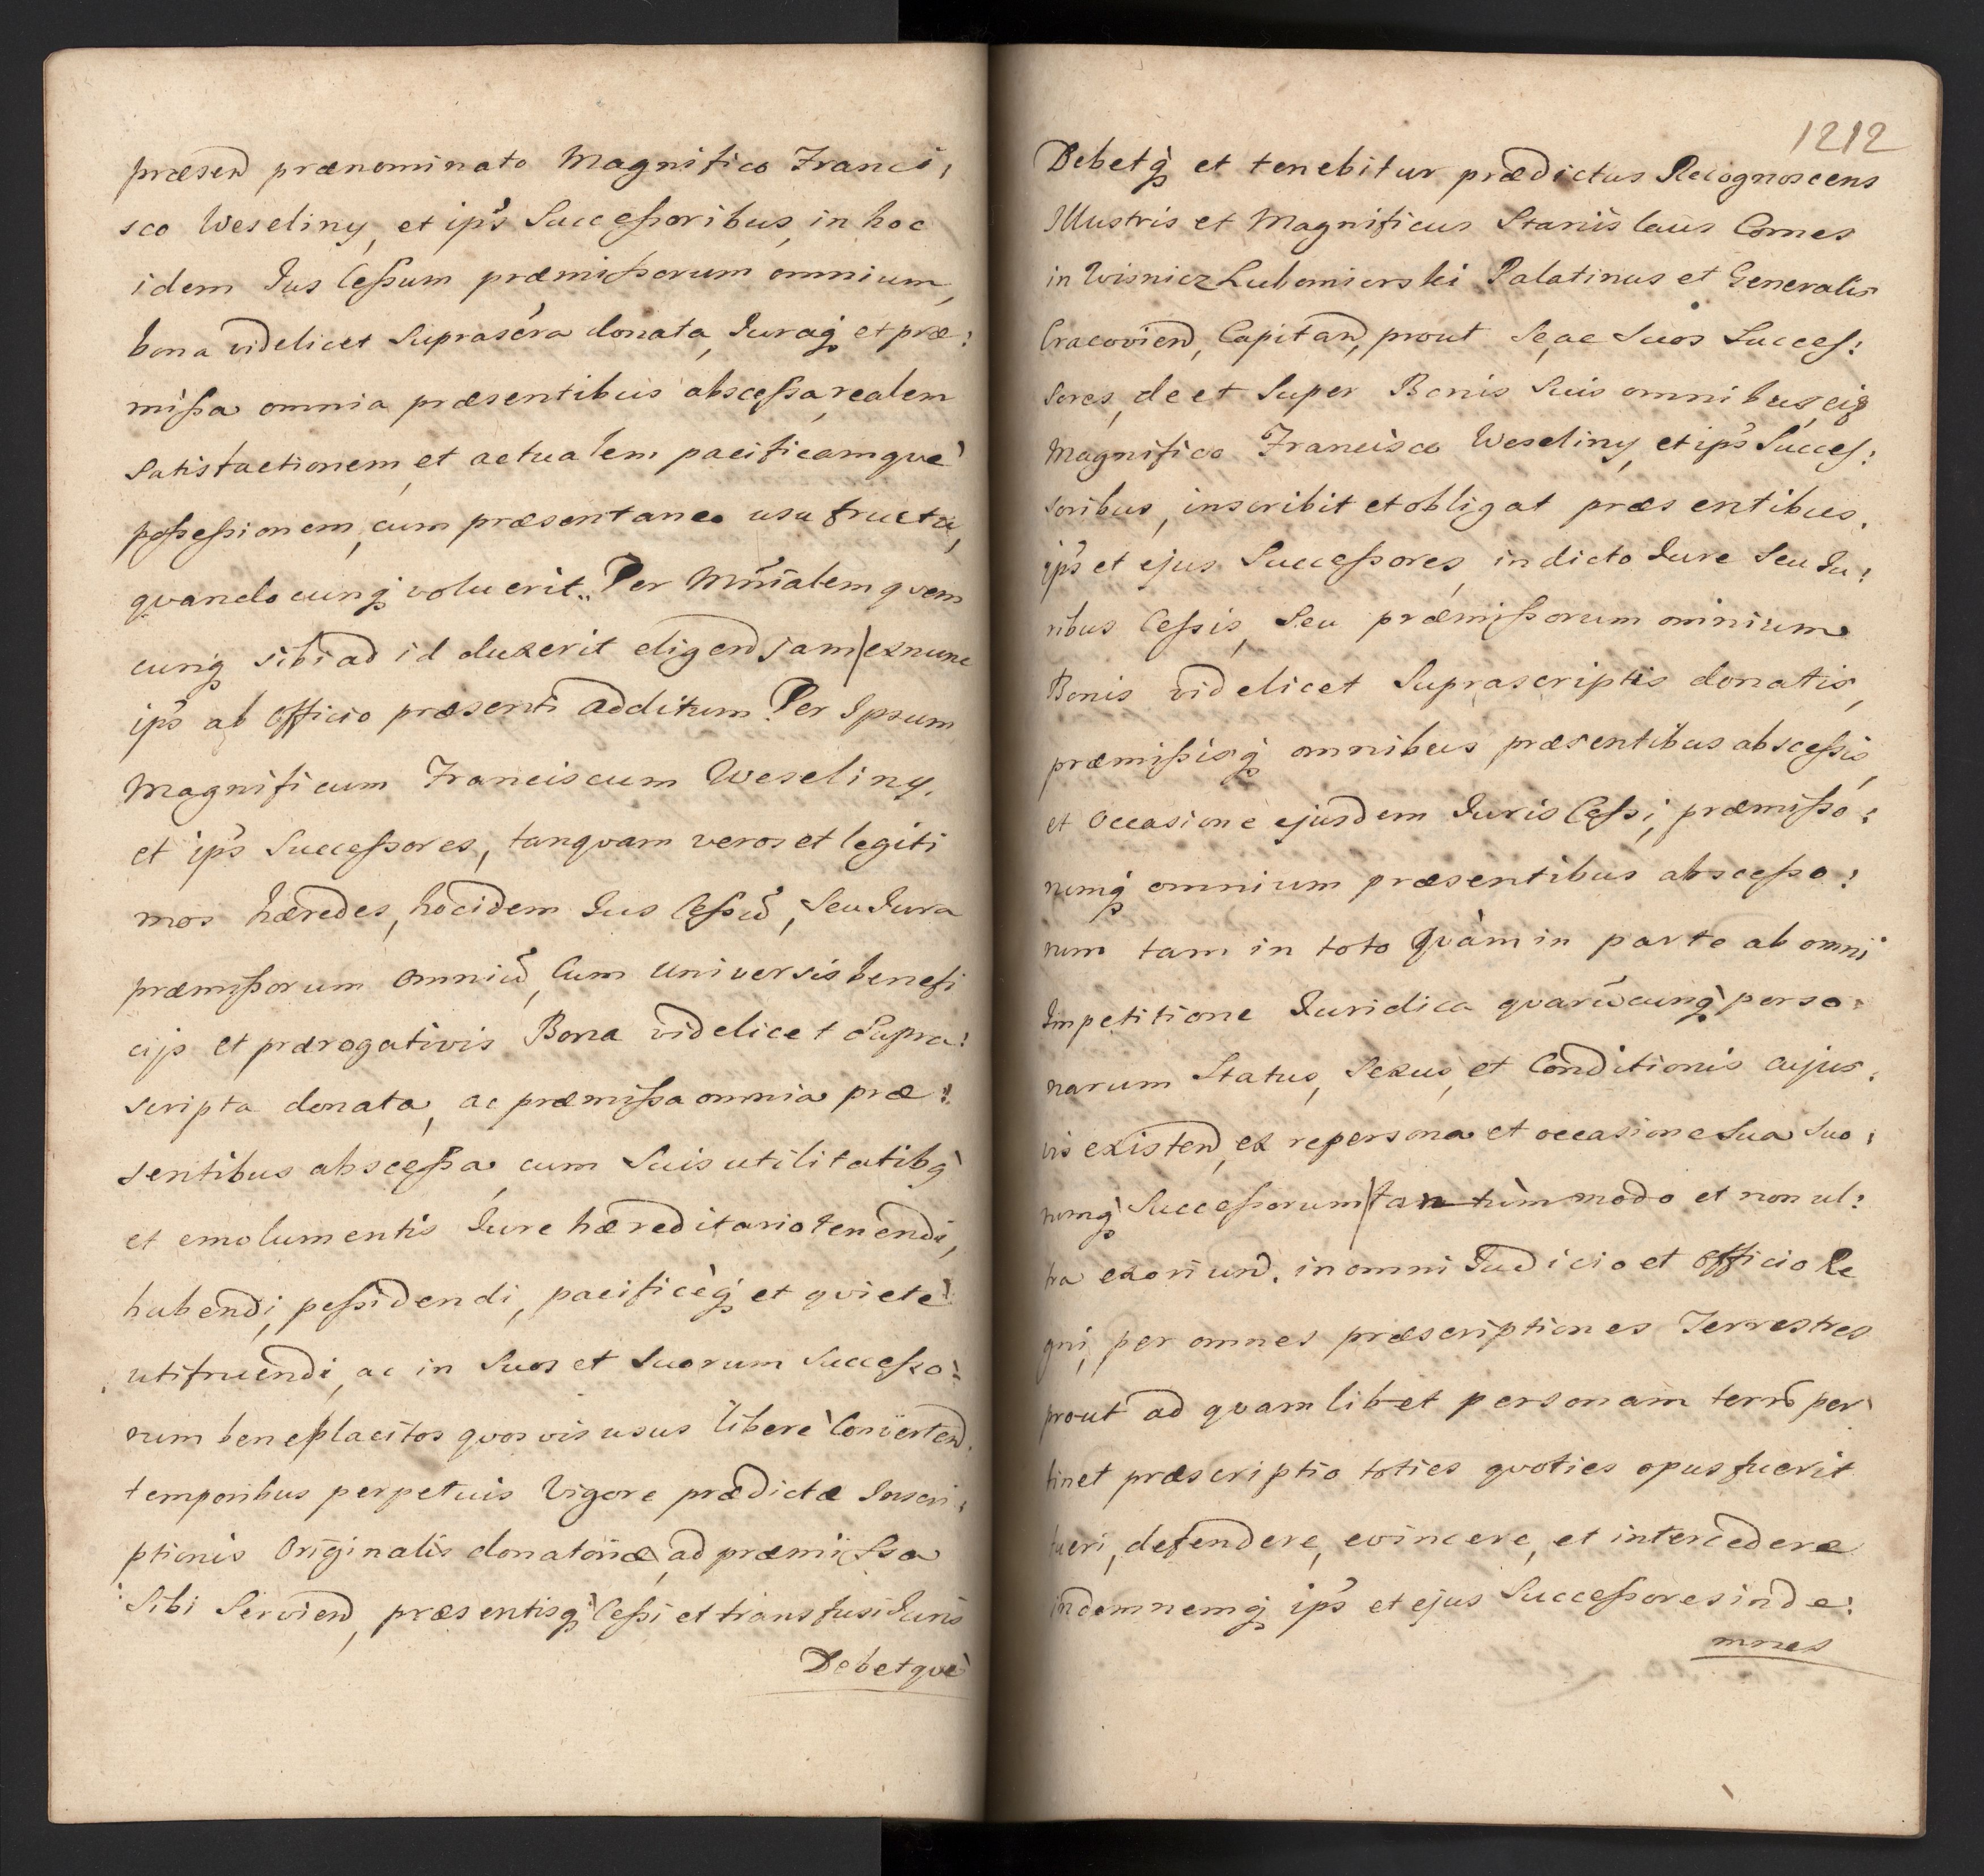 præsen prænominato Magnifico Franci,
sco Weseliny, et ips Successoribus, in hoc
idem Jus Cessum præmissorum omnium,
bona videlicet Suprascra donata, Juraq et præ:
missa omnia præsentibus abscessa, realem
Satisfactionem, et actualem pacificamque
possessionem, cum præsentaneo usu fructu,
qvandocunq voluerit. Per Mnrialem qvem
cunq sibi ad id duxerit eligend jam / exnunc
ips ab Officio præsenti additum. Per Ipsum
Magnificum Franciscum Weseliny.
et ips Successores, tanqvam veros et legiti
mos hæredes, hoc idem Jus Cessu, Seu Jura
præmissorum omniu, Cum universis benefi
cijs et prærogativis Bona videlicet Supra:
scripta donata, ac præmissa omnia præ:
sentibus abscessa, cum Suis utilitatibq
et emolumentis Jure hæreditario tenendi,
habendi, possidendi, pacificeq et qviete
utifruendi, ac in Suos et Suorum Successo:
rum beneplacitos qvosvis usus libere Convertend.
temporibus perpetuis Vigore prædictæ Inscri,
ptionis Originalis donatoriæ, ad præmissa
Sibi Serviend, præsentisq Cessi et transfusi Juris
Debetque
1212
Debetq et tenebitur prædictus Recognoscens
Illustris et Magnificus Stanislaus Comes
in Wisnicz Lubomierski Palatinus et Generalis
Cracovien, Capitan, prout Se, ac Suos Succes:
sores, de et Super Bonis Suis omnibus, eiq
Magnifico Francisco Weseliny, et ips Succes:
soribus, inscribit et obligat præsentibus.
ips et ejus Successores, in dicto Jure Seu Ju:
ribus Cessis, Seu præmissorum omnium
Bonis videlicet Suprascriptis donatis,
præmissisq omnibus præsentibus abscessis,
et Occasione ejusdem Juris Cessi, præmisso:
rumq omnium præsentibus abscesso:
rum tam in toto Qvàm in parte ab omni
Impetitione Juridica qvarucunq perso:
narum Status, Sexus, et Conditionis cujus:
vis existen, ex re persona et occasione Sua Suo:
rumq Successorum / tantùm modo et non ul:
tra exoriund. in omni Judicio et Officio Re
gni, per omnes præscriptiones Terrestres
prout ad qvamlibet personam terro per
tinet præscriptio toties qvoties opus fuerit
tueri, defendere, evincere, et intercedere
indemnemq ips et ejus Successores inde:
mnes